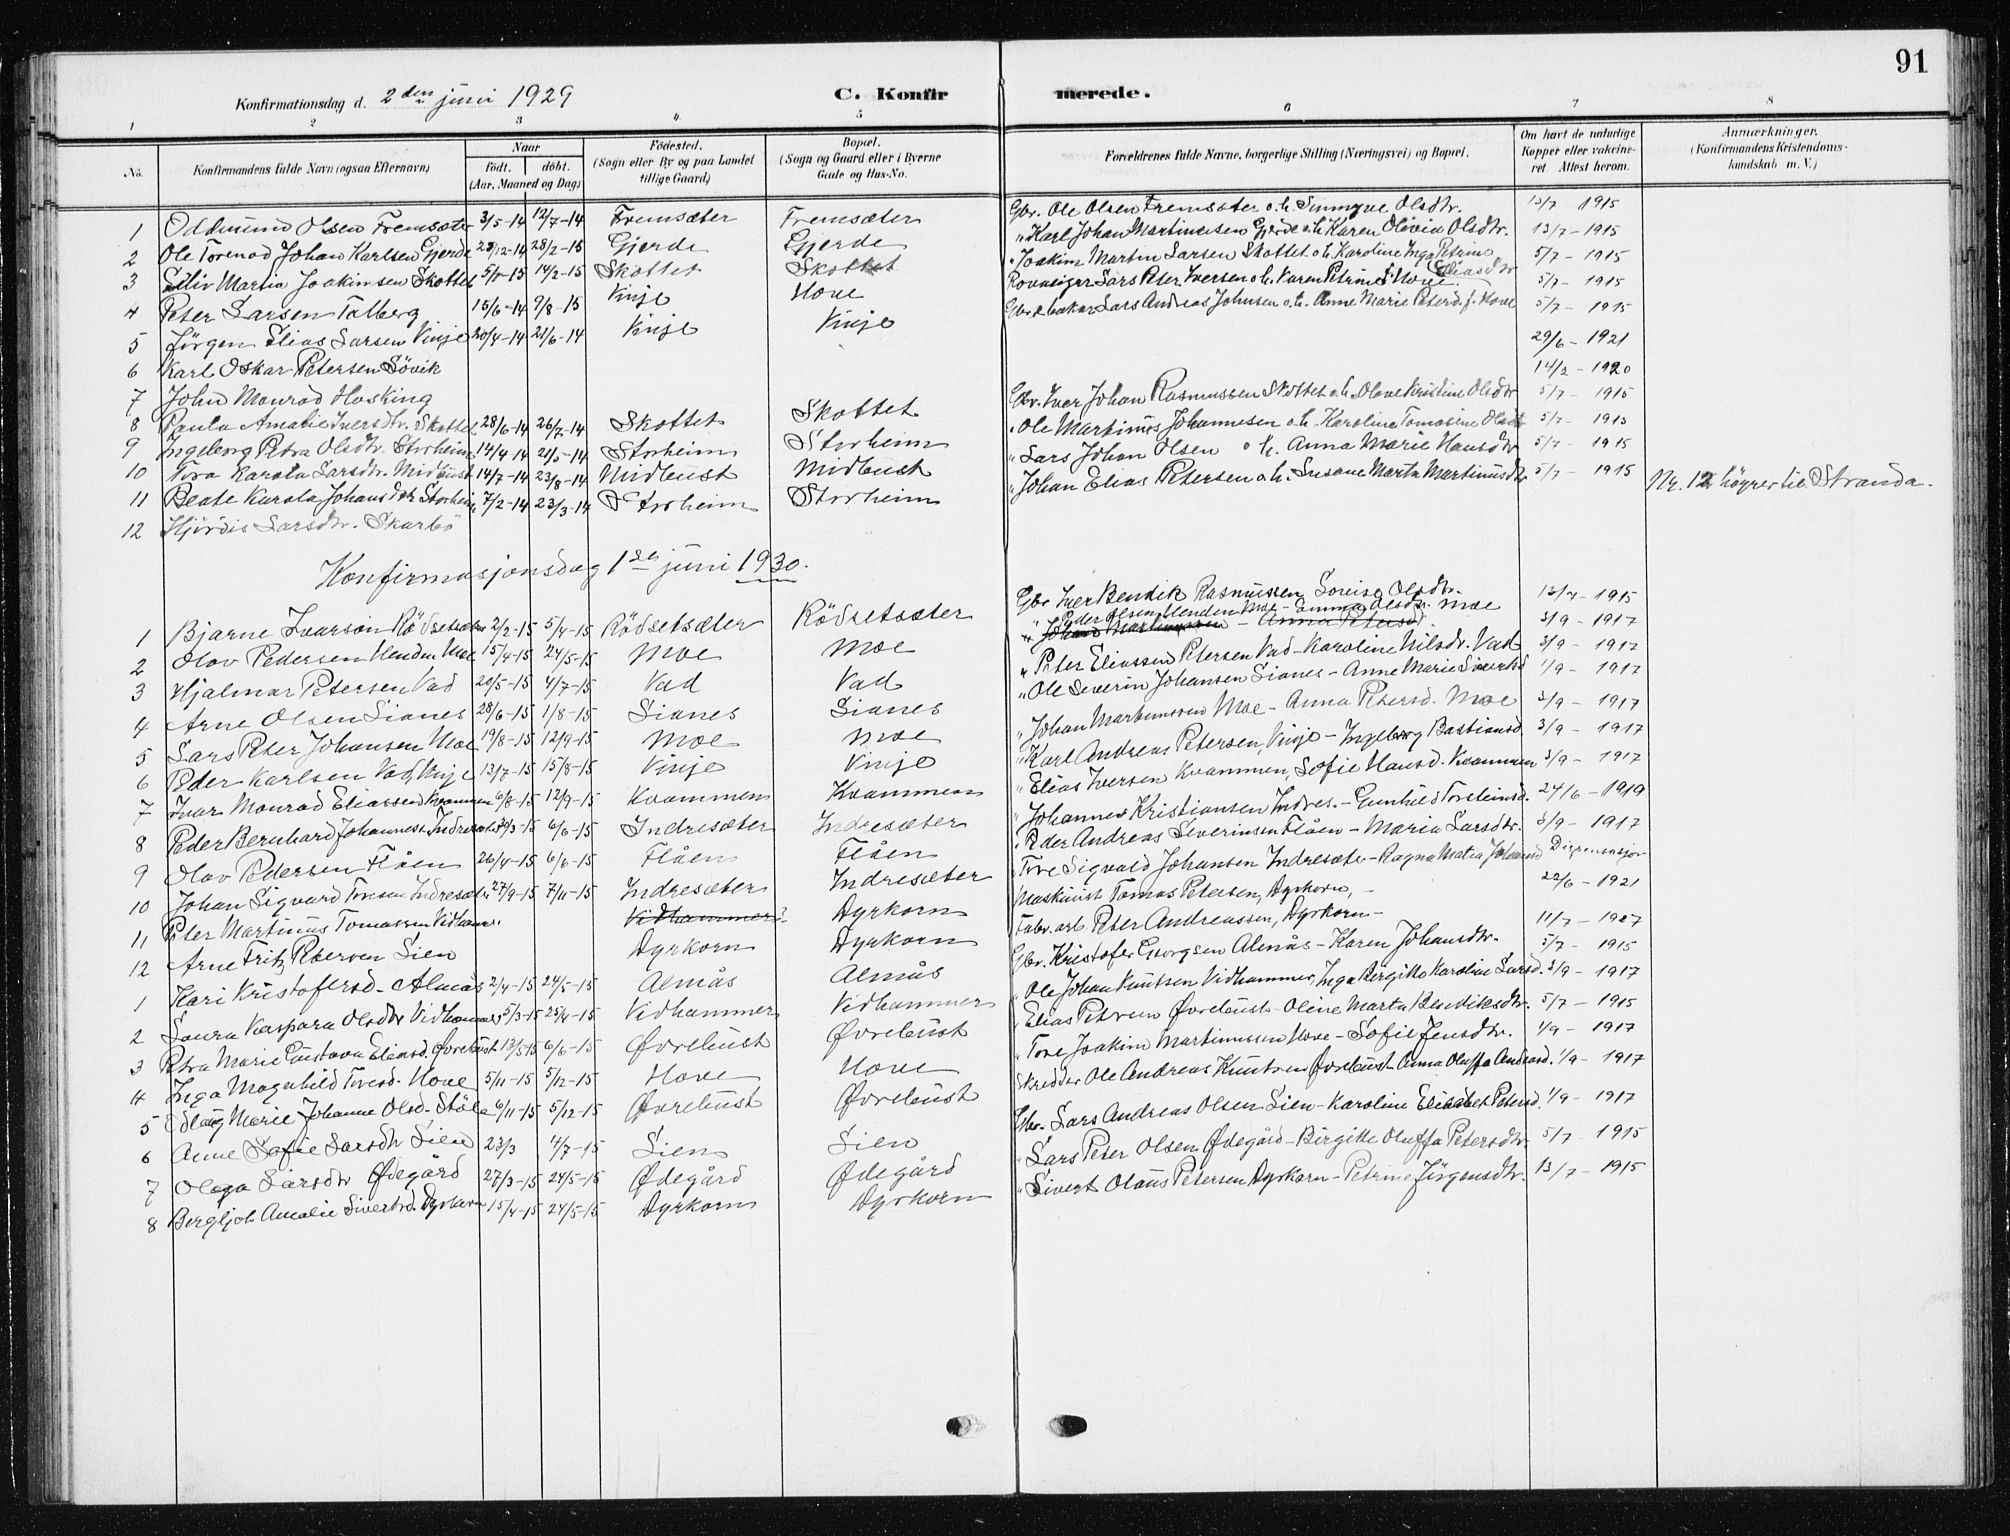 91
Konfirmationsdag d. 2den juni 1929 C. Konfirmerede.
1 2 3 4 5 6 7 8
No. Konfirmandens fulde Navn (ogsaa Efternavn) Naar født. døbt. (Aar, Maaned og Dag) Fødested. (Sogn eller By og paa Landet tillige Gaard) Bopæl. (Sogn og Gaard eller i Byerne Gade og Hus-No. Forældrenes fulde Navne, borgerlige Stilling (Næringsvei) og Bopæl. Om havt de naturlige Kopper eller vakcineret Attest herom. Anmærkninger. (Konfirmandens Kristendomskundskab m. V.)
1 Oddmund Olsen Fremsæter 3/5-14 12/7-14 Fremsæter Fremsæter Gbr. Ole Olsen Fremsæter o.h. Olsdtr. 13/7 - 1915
2 Ole Tormod Johan Karlsen Gjerde 29/12-14 28/2-15 Gjerde Gjerde " Karl Johan Martinusen Gjerde o.h. Karen Olivia Olsdtr. 13/7 - 1915
3 Martin Joakimsen Skottet 5/1-15 14/2-15 Skottet Skottet " Joakim Martin Larsen Skottet o.h. Karoline Inga Petrine Eliasdtr 5/7 - 1915
4 Peter Larsen Talberg 15/6-14 9/8-15 Vinje Hove Lars Peter Iversen o.h. Karen Petrine Hove 5/7 - 1915
5 Jørgen Elias Larsen Vinje 20/4-14 21/6-14 Vinje Vinje Lars Andreas Johnsen o.h. Anne Marie Petersd. f. Hove 5/7 - 1915
6 Karl Oskar Petersen Søvik 29/6 - 1921
7 John Monrad Hosking 14/2 - 1920
8 Paula Amalie Iversdtr. Skottet 28/6-14 26/7-14 Skottet Skottet Gbr. Iver Johan Rasmussen Skottet o.h. Olave Kristine Olsdtr 5/7 - 1915
9 Ingeborg Petra Olsdtr. Storheim 14/4-14 21/5-14 Storheim Storheim " Ole Martinus Johannesen o.h. Karoline Tomasine Olsdtr 5/7 - 1915
10 Tora Karola Larsdtr. Midbust 14/7-14 23/8-14 Midbust Midbust " Lars Johan Olsen o h. Anna Marie Hansdtr 5/7 - 1915
11 Beate Karola Johansdtr Storheim 7/2-14 23/3-14 Storheim Storheim " Johan Elias Petersen o.h. Susane Marta Martinusdtr 5/7 - 1915
12 Hjørdis Larsdtr. Skarbø Nr. 12 høyrer til Stranda.
Konfirmasjonsdag 1ste juni 1930.
1 Bjarne Ivarson Rødsetsæter 2/2-15 5/4-15 Rødsetsæter Rødsetsæter Gbr Iver Bendik Rasmussen Lovise Olsdtr. 13/7 - 1915
2 Olav Pedersen Henden Moe 15/4-15 24/5-15 Moe Moe " Peder Olsen Henden Moe - Emma Olsdtr. Moe 3/9 - 1917
Johan Martinussen - Anna Petersd.
3 Hjalmar Petersen Vad 20/5-15 4/7-15 Vad Vad " Peter Eliassen Petersen Vad - Karoline Nilsdr. Vad 3/9 - 1917
4 Arne Olsen Sianes 28/6-15 1/8-15 Sianes Sianes " Ole Severin Johansen Sianes - Anne Marie Siverts 1/9 - 1917
5 Lars Peter Johansen Moe 19/8-15 12/9-15 Moe Moe " Johan Martinussen Moe - Anna Petersd. Moe 3/9 - 1917
6 Peder Karlsen Vad, Vinje 13/7-15 15/8-15 Vinje Vinje " Karl Andreas Petersen, Vinje - Ingeborg Bastiansd 3/9 - 1917
7 Ivar Monrad Eliassen Kvammen 6/8-15 12/9-15 Kvammen Kvammen " Elias Iversen Kvammen, Sofie Hansd. Kvammen 3/9 - 1917
8 Peder Bernhard Johanness. Indresæter 30/3-15 6/6-15 Indresæter Indresæter " Johannes Kristiansen Indres. - Gunhild Torsteinsd. 24/6 - 1919
9 Olav Pedersen Flåen 26/4-15 6/6-15 Flåen Flåen " Peder Andreas Severinsen Flåen - Maria Larsdtr. 3/9 - 1917
10 Johan Sigvard Toresen Indresæter 27/9-15 7/11-15 Indresæter Indresæter " Tore Sigvald Johansen Indresæter - Ragna Matea Johansd Dispensasjon
11 Peter Martinus Tomassen Vidhammer. Vidhammer? Dyrkorn Maskinist Tomas Petersen, Dyrkorn, - 22/6 - 1921
12 Arne Fritz Petersen Sien Dyrkorn Dyrkorn Fabr. arb. Peter Andreassen, Dyrkorn - 11/7 - 1927
1 Kari Kristofersd. Almås 2/4-15 24/5-15 Almås Almås Gbr. Kristofer Georgsen Almås - Karen Johansdtr. 5/7 - 1915
2 Laura Kaspara Olsdtr Vidhammer 5/3-15 25/4-15 Vidhammer Vidhammer " Ole Johan Knutsen Vidhammer, Inga Birgitte Karoline Larsd. 3/9 - 1917
3 Petra Marie Gustava Eliasd. Øvrebust 13/5-15 6/6-15 Øvrebust Øvrebust " Elias Petersen Øvrebust - Oline Marta Bendiksdtr. 5/7 - 1915
4 Inga Magnhild Toresd. Hove 5/11-15 5/12-15 Hove Hove " Tore Joakim Martinussen Hove - Sofie Jensdtr. 1/9 - 1917
5 Edlaug Marie Johanne Olsd. Støle 6/11-15 5/12-15 Øvrebust Øvrebust Skredder Ole Andreas Knutsen Øvrebust - Anna Oluffa Andreasd. 1/9 - 1917
6 Anne Sofie Larsdtr Sien 23/3 4/7-15 Sien Sien Gbr. Lars Andreas Olsen Sien - Karoline Elisabet Petersd. 1/9 - 1917
7 Olaga Larsdtr Ødegård 27/3-15 24/5-15 Ødegård Ødegård " Lars Peter Olsen Ødegård - Birgitte Oluffa Petersdtr 5/7 - 1915
8 Bergljot Amalie Sivertsd. Dyrkorn 15/4-15 24/5-15 Dyrkorn Dyrkorn " Sivert Olaus Petersen Dyrkorn - Petrine Jørgensdtr. 13/7 - 1915